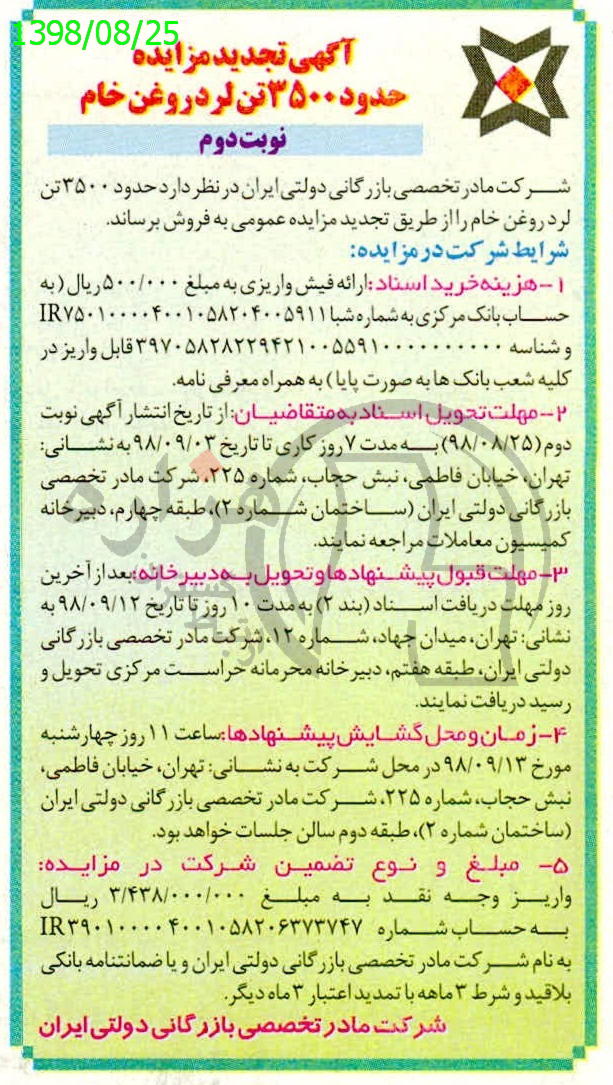 1398/08/25
آگهی تجدید مزایده
حدود ۳۵۰۰ تن لرد روغن خام
نوبت دوم
شرکت مادر تخصصی بازرگانی دولتی ایران در نظر دارد حدود ۳۵۰۰ تن
لرد روغن خام را از طریق تجدید مزایده عمومی به فروش برساند.
شرایط شرکت در مزایده:
۱- هزینه خرید اسناد: ارائه فیش واریزی به مبلغ ۵۰۰/۰۰۰ ریال (به
حساب بانک مرکزی به شماره شبا IR۷۵۰۱۰۰۰۰۴۰۰۱۰۵۸۲۰۴۰۰۵۹۱۱
و شناسه ۳۹۷۰۵۸۲۸۲۲۹۴۲۱۰۰۵۵۹۱۰۰۰۰۰۰۰۰۰۰ قابل واریز در
کلیه شعب بانک ها به صورت پایا) به همراه معرفی نامه.
۲- مهلت تحویل اسناد به متقاضیان: از تاریخ انتشار آگهی نوبت
دوم (۹۸/۰۸/۲۵) به مدت ۷ روز کاری تا تاریخ ۹۸/۰۹/۰۳ به نشانی:
تهران، خیابان فاطمی، نبش حجاب، شماره ۲۲۵، شرکت مادر تخصصی
بازرگانی دولتی ایران (ساختمان شماره ۲)، طبقه چهارم، دبیرخانه
کمیسیون معاملات مراجعه نمایند.
۳- مهلت قبول پیشنهادها و تحویل به دبیرخانه: بعد از آخرین
روز مهلت دریافت اسناد (بند ۲) به مدت ۱۰ روز تا تاریخ ۹۸/۰۹/۱۲ به
نشانی: تهران، میدان جهاد، شماره ۱۲، شرکت مادر تخصصی بازرگانی
دولتی ایران، طبقه هفتم، دبیرخانه محرمانه حراست مرکزی تحویل و
رسید دریافت نمایند.
۴- زمان و محل گشایش پیشنهادها: ساعت ۱۱ روز چهارشنبه
مورخ ۹۸/۰۹/۱۳ در محل شرکت به نشانی: تهران، خیابان فاطمی،
نبش حجاب، شماره ۲۲۵، شرکت مادر تخصصی بازرگانی دولتی ایران
(ساختمان شماره ۲)، طبقه دوم سالن جلسات خواهد بود.
۵- مبلغ و نوع تضمین شرکت در مزایده:
واریز وجه نقد به مبلغ ۳/۴۳۸/۰۰۰/۰۰۰ ریال
به حساب شماره IR۳۹۰۱۰۰۰۰۴۰۰۱۰۵۸۲۰۶۳۷۳۷۴۷
به نام شرکت مادر تخصصی بازرگانی دولتی ایران و یا ضمانتنامه بانکی
بلاقید و شرط ۳ ماهه با تمدید اعتبار ۳ ماه دیگر.
شرکت مادر تخصصی بازرگانی دولتی ایران
هزاره